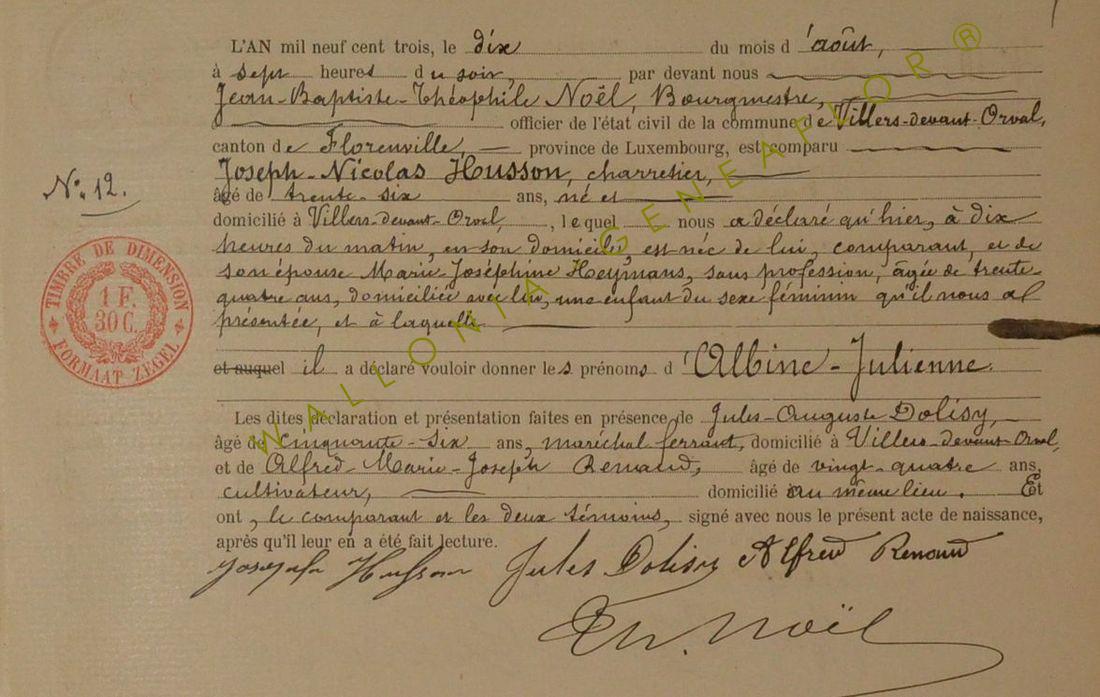 L'AN mil neuf cent trois, le dix du mois d'août,
à sept heures du soir, par devant nous
Jean-Baptiste-Théophile Noël, Bourgmestre,
officier de l'état civil de la commune de Villers-devant-Orval,
canton de Florenville, — province de Luxembourg, est comparu
Joseph-Nicolas Husson, charretier,
âgé de trente-six ans, né et
domicilié à Villers-devant-Orval, , lequel nous a déclaré qu'hier, à dix
heures du matin, en son domicile, est née de lui, comparant, et de
son épouse Marie-Joséphine Heymans, sans profession, âgée de trente-
quatre ans, domiciliée avec lui, une enfant du sexe féminin qu'il nous a
présentée, et à laquelle
et auquel il a déclaré vouloir donner les prénoms d'Albine-Julienne.
Les dites déclaration et présentation faites en présence de Jules-Auguste Dolisy,
âgé de cinquante-six ans, maréchal ferrant, domicilié à Villers-devant-Orval,
et de Alfred-Marie-Joseph Renaud, âgé de vingt-quatre ans,
cultivateur, domicilié au même lieu. Et
ont, le comparant et les deux témoins, signé avec nous le présent acte de naissance,
après qu'il leur en a été fait lecture.
Joseph Husson Jules Dolisy Alfred Renaud
Th. Noël
No. 12.
TIMBRE DE DIMENSION
1 F.
30 C.
FORMAAT ZEGEL
WALLONIA GENEAFLOR ®